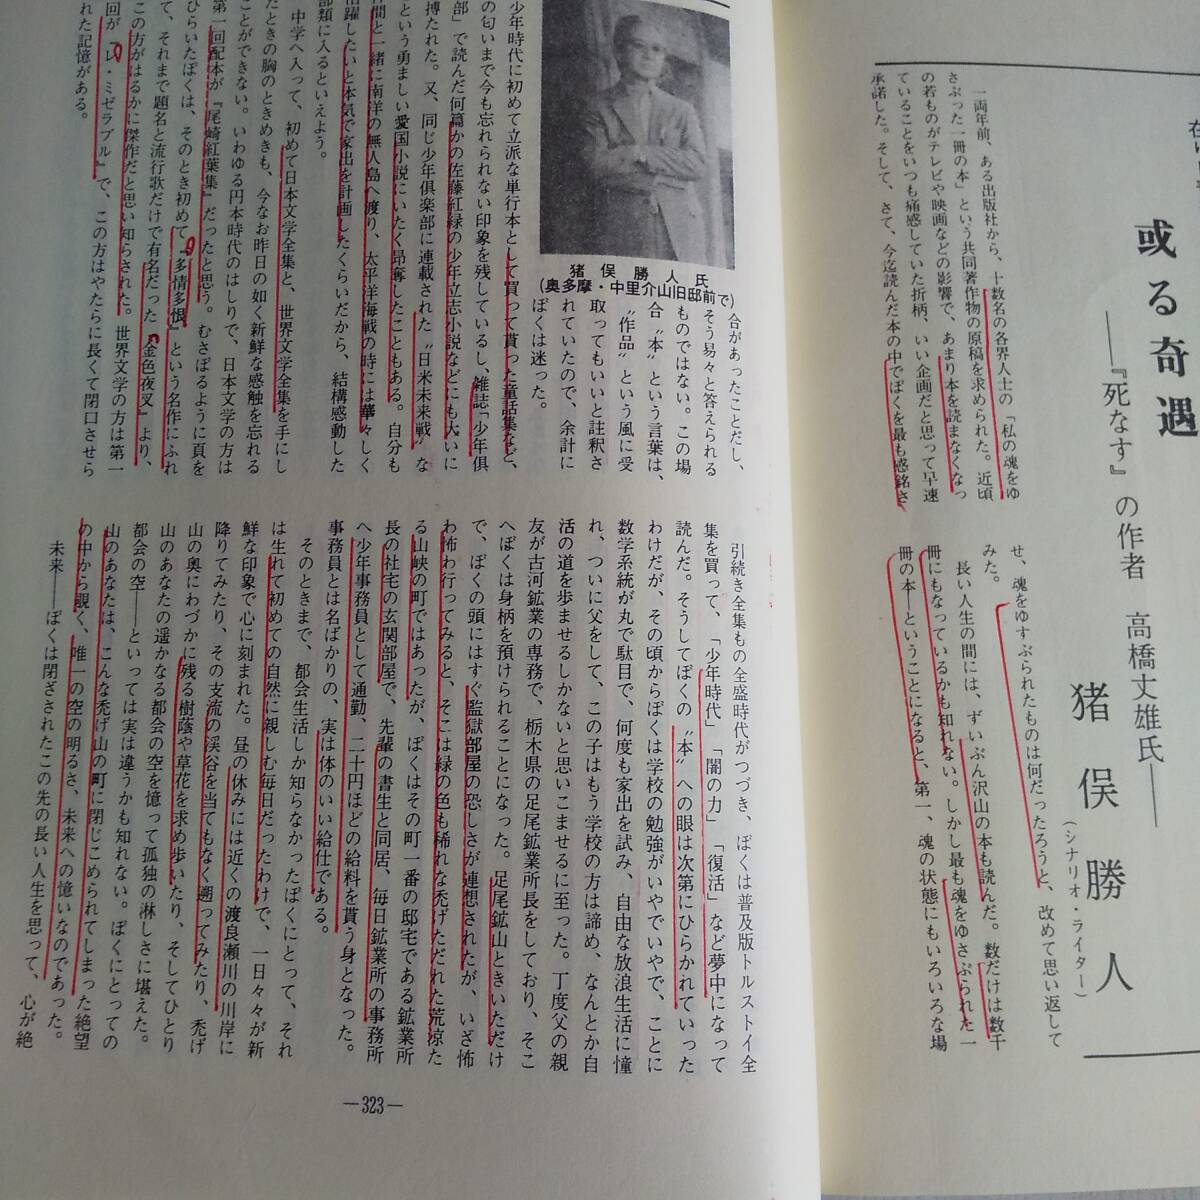 或る奇遇
――『死なす』の作者 高橋丈雄氏――
猪俣勝人
(シナリオ・ライター)
一両年前、ある出版社から、十数名の各界人士の「私の魂をゆ
さぶった一冊の本」という共同著作物の原稿を求められた。近頃
の若ものがテレビや映画などの影響で、あまり本を読まなくなっ
ていることをいつも痛感していた折柄、いい企画だと思って早速
承諾した。そして、さて、今迄読んだ本の中でぼくを最も感銘さ
せ、魂をゆすぶられたものは何だったろうと、改めて思い返して
みた。
長い人生の間には、ずいぶん沢山の本も読んだ。数だけは数千
冊にもなっているかも知れない。しかし最も魂をゆさぶられた一
冊の本―ということになると、第一、魂の状態にもいろいろな場
合があったことだし、
そう易々と答えられる
ものではない。この場
合〝本〟という言葉は、
〝作品〟という風に受
取ってもいいと註釈さ
れていたので、余計に
ぼくは迷った。
猪俣勝人氏
(奥多摩・中里介山旧邸前で)
少年時代に初めて立派な単行本として買って貰った童話集など、
の匂いまで今も忘れられない印象を残しているし、雑誌「少年倶
部」で読んだ何篇かの佐藤紅緑の少年立志小説などにも大いに
搏たれた。又、同じ少年倶楽部に連載された〝日米未来戦〟な
という勇ましい愛国小説にいたく昂奪したこともある。自分も
間と一緒に南洋の無人島へ渡り、太平洋海戦の時には華々しく
活躍したいと本気で家出を計画したくらいだから、結構感動した
部類に入るといえよう。
中学へ入って、初めて日本文学全集と、世界文学全集を手にし
たときの胸のときめきも、今なお昨日の如く新鮮な感触を忘れる
ことができない。いわゆる円本時代のはしりで、日本文学の方は
第一回配本が『尾崎紅葉集』だったと思う。むさぼるように頁を
ひらいたぼくは、そのとき初めて『多情多恨』という名作にふれ
て、それまで題名と流行歌だけで有名だった『金色夜叉』より、
この方がはるかに傑作だと思い知らされた。世界文学の方は第一
回が『レ・ミゼラブル』で、この方はやたらに長くて閉口させら
れた記憶がある。
引続き全集もの全盛時代がつづき、ぼくは普及版トルストイ全
集を買って、「少年時代」「闇の力」「復活」など夢中になって
読んだ。そうしてぼくの〝本〟への眼は次第にひらかれていった
わけだが、その頃からぼくは学校の勉強がいやでいやで、ことに
数学系統が丸で駄目で、何度も家出を試み、自由な放浪生活に憧
れ、ついに父をして、この子はもう学校の方は諦め、なんとか自
活の道を歩ませるしかないと思いこませるに至った。丁度父の親
友が古河鉱業の専務で、栃木県の足尾鉱業所長をしており、そこ
へぼくは身柄を預けられることになった。足尾鉱山ときいただけ
で、ぼくの頭にはすぐ監獄部屋の恐しさが連想されたが、いざ怖
わ怖わ行ってみると、そこは緑の色も稀れな禿げただれた荒涼た
る山峡の町ではあったが、ぼくはその町一番の邸宅である鉱業所
長の社宅の玄関部屋で、先輩の書生と同居、毎日鉱業所の事務所
へ少年事務員として通勤、二十円ほどの給料を貰う身となった。
事務員とは名ばかりの、実は体のいい給仕である。
そのときまで、都会生活しか知らなかったぼくにとって、それ
は生れて初めての自然に親しむ毎日だったわけで、一日々々が新
鮮な印象で心に刻まれた。昼の休みには近くの渡良瀬川の川岸に
降りてみたり、その支流の渓谷を当てもなく遡ってみたり、禿げ
山の奥にわづかに残る樹蔭や草花を求め歩いたり、そしてひとり
山のあなたの遥かなる都会の空を憶って孤独の淋しさに堪えた。
都会の空――といっては実は違うかも知れない。ぼくにとっての
山のあなたは、こんな禿げ山の町に閉じこめられてしまった絶望
の中から覗く、唯一の空の明るさ、未来への憶いなのであった。
未来――ぼくは閉ざされたこの先の長い人生を思って、心が絶
―323―